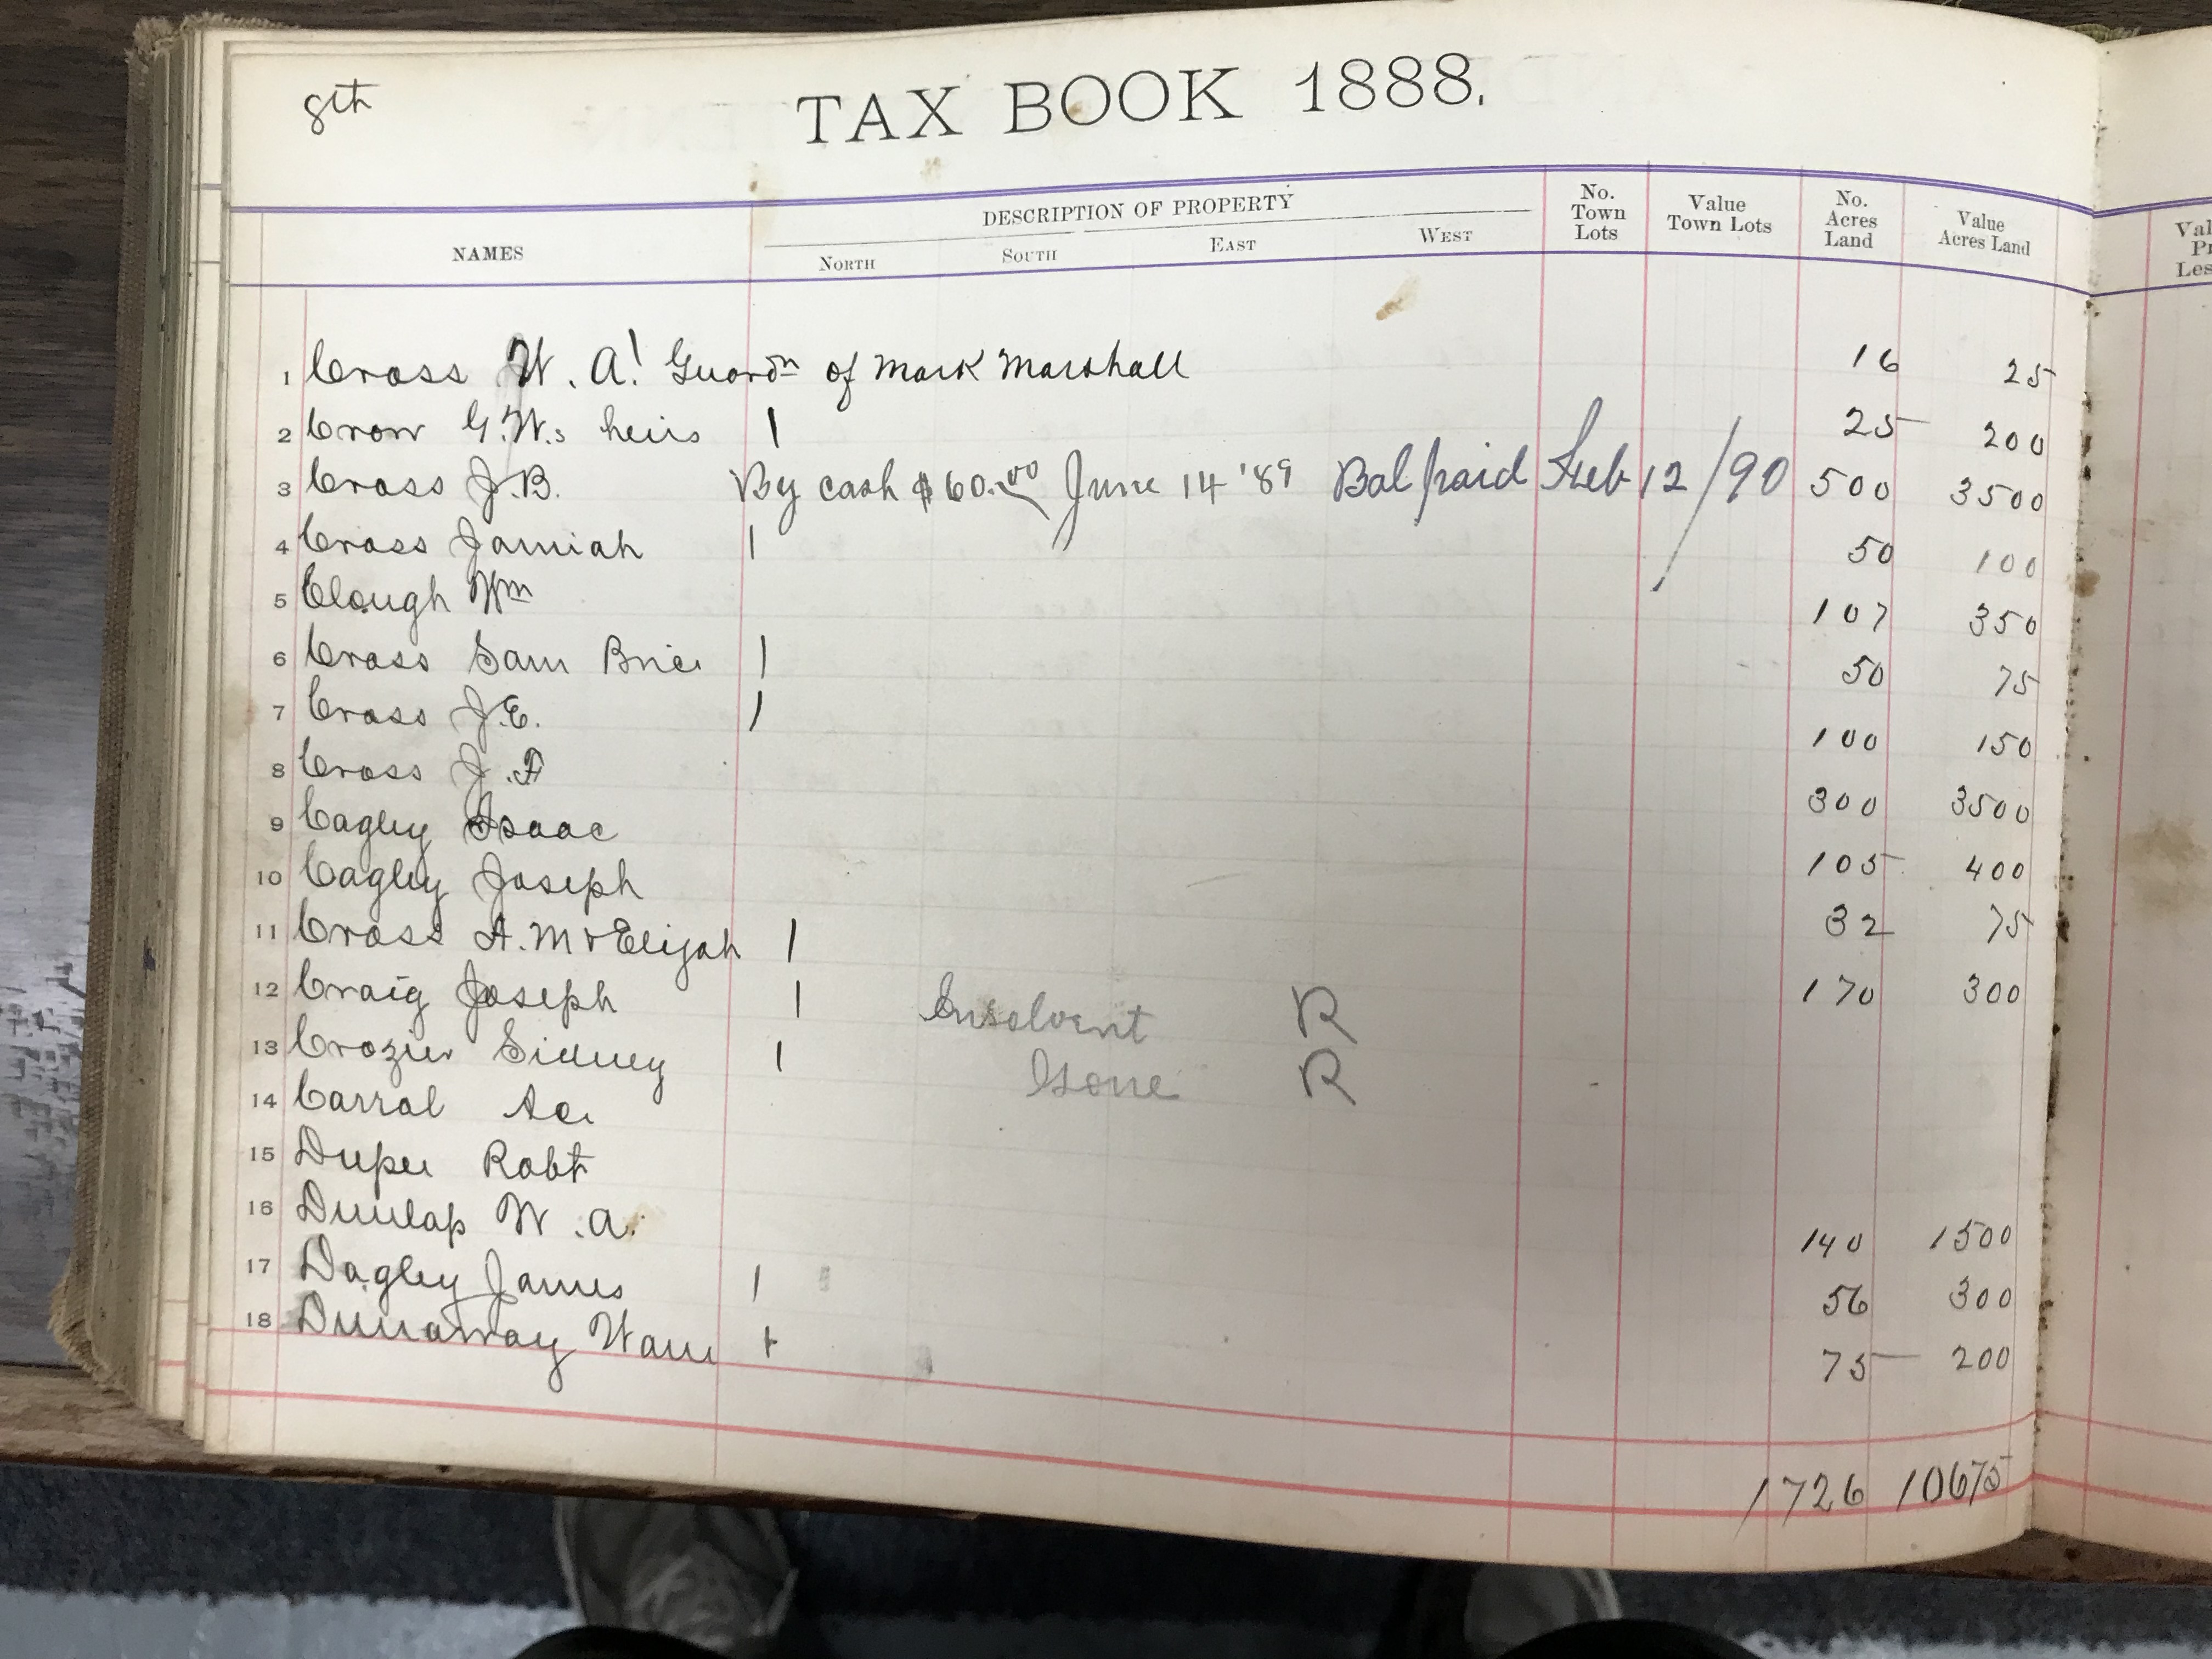 8th
TAX BOOK 1888.
NAMES
DESCRIPTION OF PROPERTY
NORTH SOUTH EAST WEST
No. Town Lots
Value Town Lots
No. Acres Land
Value Acres Land
1 Cross W. A. Guardn of Mark Marshall 16 25
2 Crow G.W.s heirs 25 200
3 Cross J.B. By cash $60.00 June 14 '89 Bal paid Feb 12/90 500 3500
4 Cross Jamiah 50 100
5 Clough Wm 107 350
6 Cross Sam Brice 50 75
7 Cross J.E. 100 150
8 Cross J.F 300 3500
9 Cagley Isaac 105 400
10 Cagley Joseph 32 75
11 Cross A.M & Elijah 170 300
12 Craig Joseph Insolvent R
13 Crozier Sidney Gone R
14 Carral
15 Dupee Robt
16 Dunlap W.A. 140 1500
17 Dagley James 56 300
18 Dunaway Wam 75 200
1726 10675